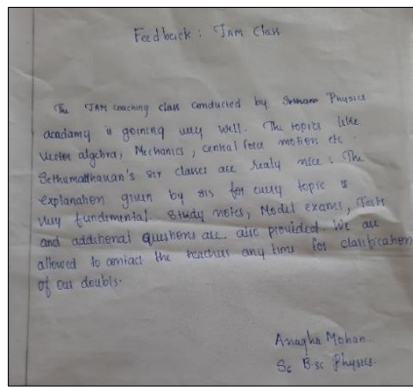 Feedback : JAM Class
The JAM coaching class conducted by Physics
acadamy is goining very well. The topics like
vector algebra, Mechanics, central force motion etc.
Sethumadhavan's sir classes are realy nice. The
explanation given by sir for every topic is
very fundemental study notes, Model exams, Tests
and additional questions are also provided. We are
allowed to contact the teachers any time for clarification
of our doubts.
Anagha Mohan
B.sc Physics